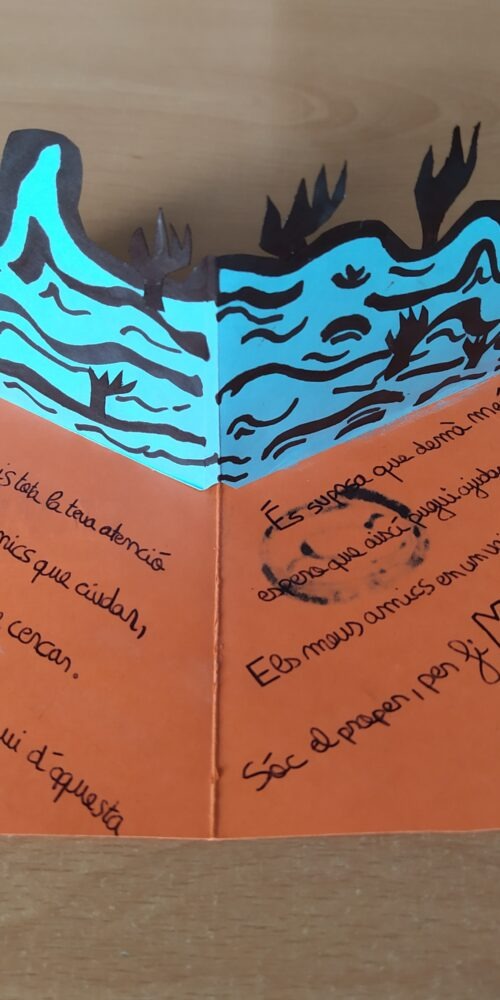 is tota la teva atenció
mics que ciudar,
cercar.
ui d'aquesta
És suposa que demà
espero que així pugui ajuda
Els meus amics en un
Sóc el proper, per fi